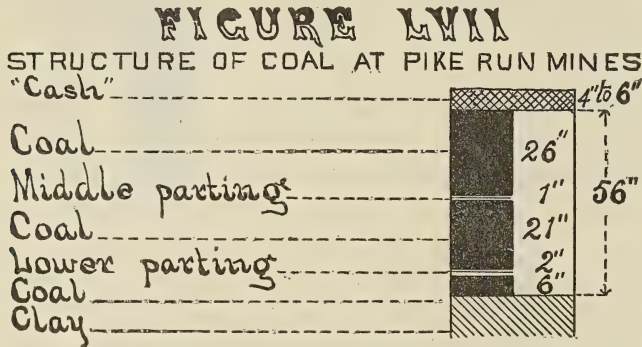 FIGURE LVII
STRUCTURE OF COAL AT PIKE RUN MINES
"Cash" 4" to 6"
Coal 26"
Middle parting 1" 56"
Coal 21"
Lower parting 2"
Coal 6"
Clay